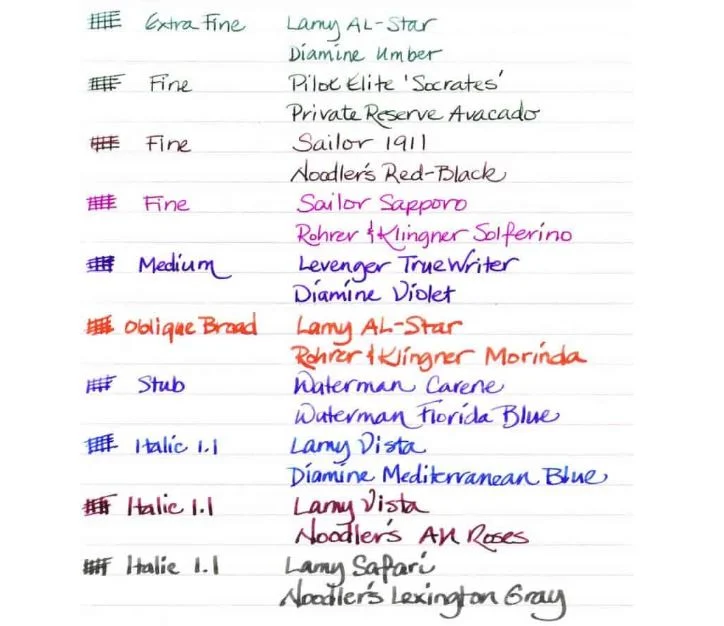 Extra Fine Lamy AL-Star
Diamine Umber
Fine Pilot Elite 'Socrates'
Private Reserve Avacado
Fine Sailor 1911
Noodler's Red-Black
Fine Sailor Sapporo
Rohrer & Klingner Solferino
Medium Levenger TrueWriter
Diamine Violet
Oblique Broad Lamy AL-Star
Rohrer & Klingner Morinda
Stub Waterman Carene
Waterman Florida Blue
Italic 1.1 Lamy Vista
Diamine Mediterranean Blue
Italic 1.1 Lamy Vista
Noodler's AH Roses
Italic 1.1 Lamy Safari
Noodler's Lexington Gray